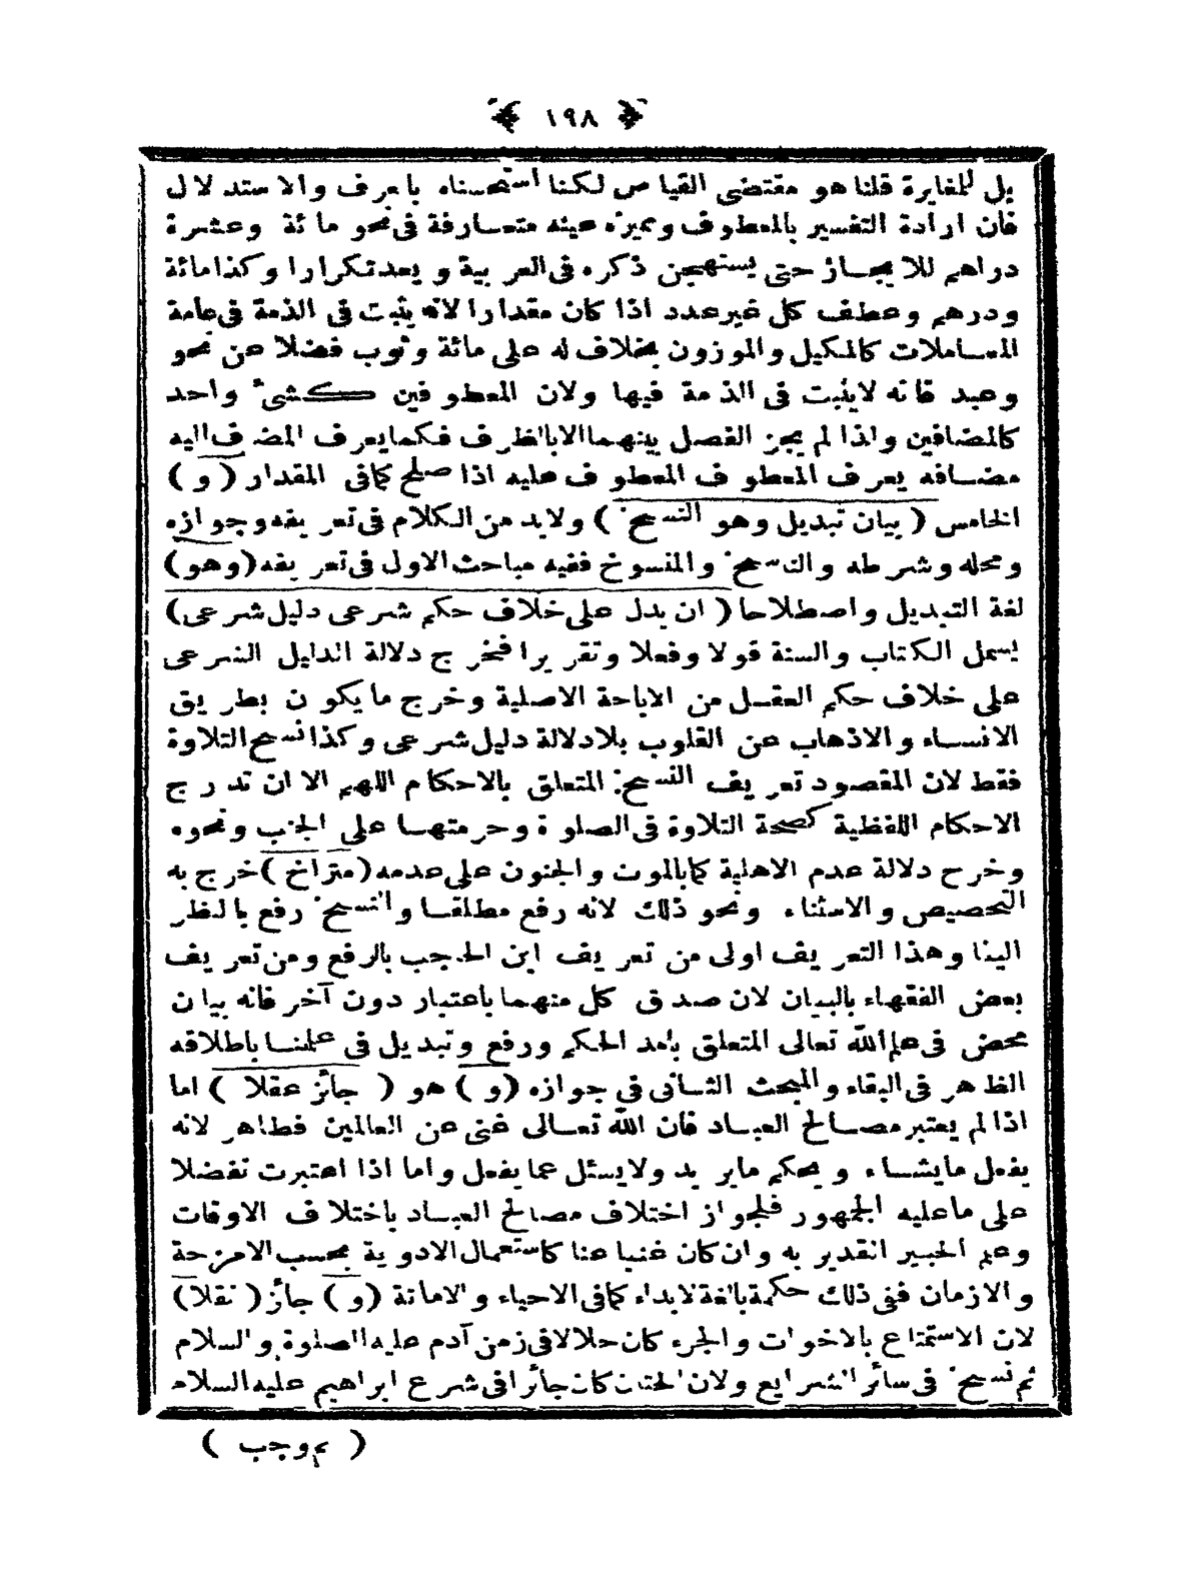 ﴿ ١٩٨ ﴾
بل للمغايرة قلنا هو مقتضى القياس لكنا استحسناه بالعرف والاستدلال
فان ارادة التفسير بالمعطوف ومميزه عينه متعارفة فى نحو مائة وعشرة
دراهم للايجاز حتى يستهجن ذكره فى العربية ويعد تكرارا وكذا مائة
ودرهم وعطف كل غير عدد اذا كان مقدارا لانه يثبت فى الذمة فى عامة
المعاملات كالمكيل والموزون بخلاف له على مائة وثوب فضلا عن نحو
وعبد فانه لايثبت فى الذمة فيها ولان المعطوفين كشئ واحد
كالمضافين ولذا لم يجز الفصل بينهما الا بالظرف فكما يعرف المضاف اليه
مضافه يعرف المعطوف المعطوف عليه اذا صلح كما فى المقدار (و)
الخامس (بيان تبديل وهو النسخ) ولابد من الكلام فى تعريفه وجوازه
ومحله وشرطه والناسخ والمنسوخ ففيه مباحث الاول فى تعريفه (وهو)
لغة التبديل واصطلاحا (ان يدل على خلاف حكم شرعى دليل شرعى)
يشمل الكتاب والسنة قولا وفعلا وتقريرا فخرج دلالة الدليل الشرعى
على خلاف حكم العقل من الاباحة الاصلية وخرج ما يكون بطريق
الانساء والاذهاب عن القلوب بلا دلالة دليل شرعى وكذا نسخ التلاوة
فقط لان المقصود تعريف النسخ المتعلق بالاحكام اللهم الا ان تدرج
الاحكام اللفظية كصحة التلاوة فى الصلوة وحرمتها على الجنب ونحوه
وخرج دلالة عدم الاهلية كما بالموت والجنون على عدمه (متراخ) خرج به
التخصيص والاستثناء ونحو ذلك لانه رفع مطلقا والنسخ رفع بالنظر
الينا وهذا التعريف اولى من تعريف ابن الحاجب بالرفع ومن تعريف
بعض الفقهاء بالبيان لان صدق كل منهما باعتبار دون آخر فانه بيان
محض فى علم الله تعالى المتعلق بأمد الحكم ورفع وتبديل فى علمنا باطلاقه
الظاهر فى البقاء والمبحث الثانى فى جوازه (و) هو (جائز عقلا) اما
اذا لم يعتبر مصالح العباد فان الله تعالى غنى عن العالمين فظاهر لانه
يفعل ما يشاء ويحكم ما يريد ولا يسئل عما يفعل واما اذا اعتبرت تفضلا
على ما عليه الجمهور فلجواز اختلاف مصالح العباد باختلاف الاوقات
وعلم الخبير القدير به وان كان غنيا عنا كاستعمال الادوية بحسب الامزجة
والازمان ففى ذلك حكمة بالغة لا بداء كما فى الاحياء والاماتة (و) جائز (نقلا)
لان الاستمتاع بالاخوات والجزء كان حلالا فى زمن آدم عليه الصلوة والسلام
ثم نسخ فى سائر الشرايع ولان الختان كان جائزا فى شرع ابراهيم عليه السلام
( ثم وجب )